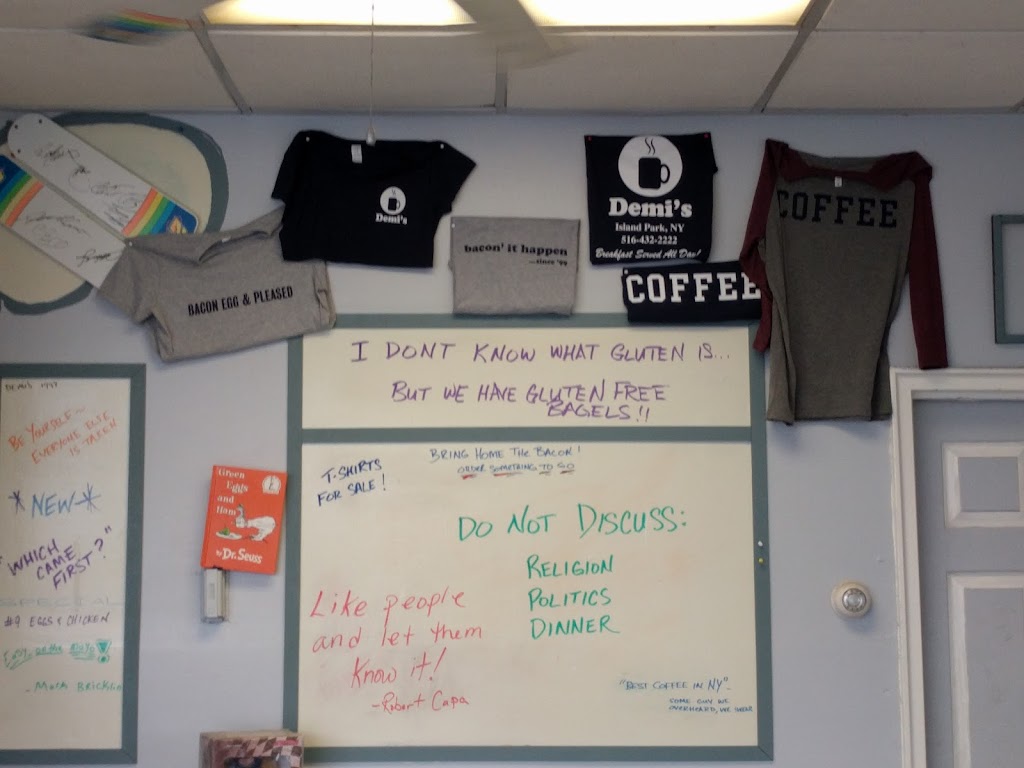 BACON EGG & PLEASED
Demi's
bacon' it happen
...since '99
Demi's
Island Park, NY
516-432-2222
Breakfast Served All Day!
COFFEE
COFFEE
I DONT KNOW WHAT GLUTEN IS...
BUT WE HAVE GLUTEN FREE
BAGELS!!
DEMI'S
BE YOURSELF~
EVERYONE ELSE
IS TAKEN
*NEW*
"WHICH
CAME
FIRST?"
SPECIAL
#9 EGGS & CHICKEN
Green
Eggs
and
Ham
By Dr. Seuss
T-SHIRTS
FOR SALE!
BRING HOME THE BACON!
ORDER SOMETHING TO GO
DO NOT DISCUSS:
RELIGION
POLITICS
DINNER
Like people
and let them
know it!
-Robert Capa
"BEST COFFEE IN NY"-
SOME GUY WE
OVERHEARD, WE SWEAR